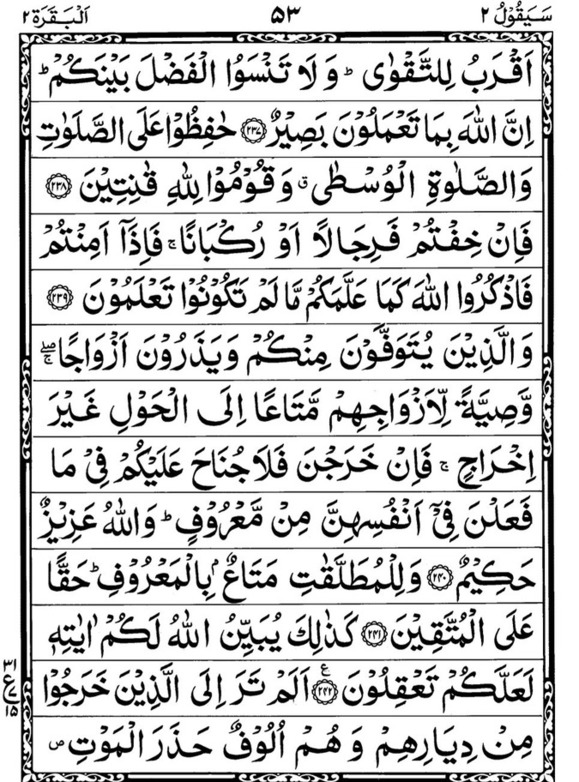 سَيَقُوۡلُ ٢ ٥٣ اَلۡبَقَرَة ٢
اَقۡرَبُ لِلتَّقۡوٰى ؕ وَ لَا تَنۡسَوُا الۡفَضۡلَ بَيۡنَكُمۡ ؕ
اِنَّ اللّٰهَ بِمَا تَعۡمَلُوۡنَ بَصِيۡرٌ ﴿٢٣٧﴾ حٰفِظُوۡا عَلَى الصَّلَوٰتِ
وَالصَّلٰوةِ الۡوُسۡطٰى ۖ وَ قُوۡمُوۡا لِلّٰهِ قٰنِتِيۡنَ ﴿٢٣٨﴾
فَاِنۡ خِفۡتُمۡ فَرِجَالًا اَوۡ رُكۡبَانًا ۚ فَاِذَاۤ اَمِنۡتُمۡ
فَاذۡكُرُوا اللّٰهَ كَمَا عَلَّمَكُمۡ مَّا لَمۡ تَكُوۡنُوۡا تَعۡلَمُوۡنَ ﴿٢٣٩﴾
وَالَّذِيۡنَ يُتَوَفَّوۡنَ مِنۡكُمۡ وَيَذَرُوۡنَ اَزۡوَاجًا ۖۚ
وَّصِيَّةً لِّاَزۡوَاجِهِمۡ مَّتَاعًا اِلَى الۡحَوۡلِ غَيۡرَ
اِخۡرَاجٍ ۚ فَاِنۡ خَرَجۡنَ فَلَا جُنَاحَ عَلَيۡکُمۡ فِىۡ مَا
فَعَلۡنَ فِىۡۤ اَنۡفُسِهِنَّ مِنۡ مَّعۡرُوۡفٍ ؕ وَاللّٰهُ عَزِيۡزٌ
حَکِيۡمٌ ﴿٢٤٠﴾ وَلِلۡمُطَلَّقٰتِ مَتَاعٌ ۢ بِالۡمَعۡرُوۡفِ ؕ حَقًّا
عَلَى الۡمُتَّقِيۡنَ ﴿٢٤١﴾ كَذٰلِكَ يُبَيِّنُ اللّٰهُ لَـکُمۡ اٰيٰتِهٖ
لَعَلَّكُمۡ تَعۡقِلُوۡنَ ﴿٢٤٢﴾ ع اَلَمۡ تَرَ اِلَى الَّذِيۡنَ خَرَجُوۡا
٣١
ع
٧
١٥
مِنۡ دِيَارِهِمۡ وَ هُمۡ اُلُوۡفٌ حَذَرَ الۡمَوۡتِ ص